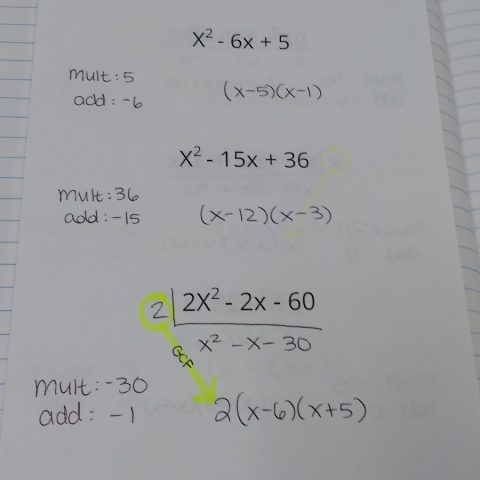 X² - 6x + 5
mult: 5
add: -6
(x-5)(x-1)
X² - 15x + 36
mult: 36
add: -15
(x-12)(x-3)
2 2X² - 2x - 60
x² - x - 30
GCF
mult: -30
add: -1
2(x-6)(x+5)